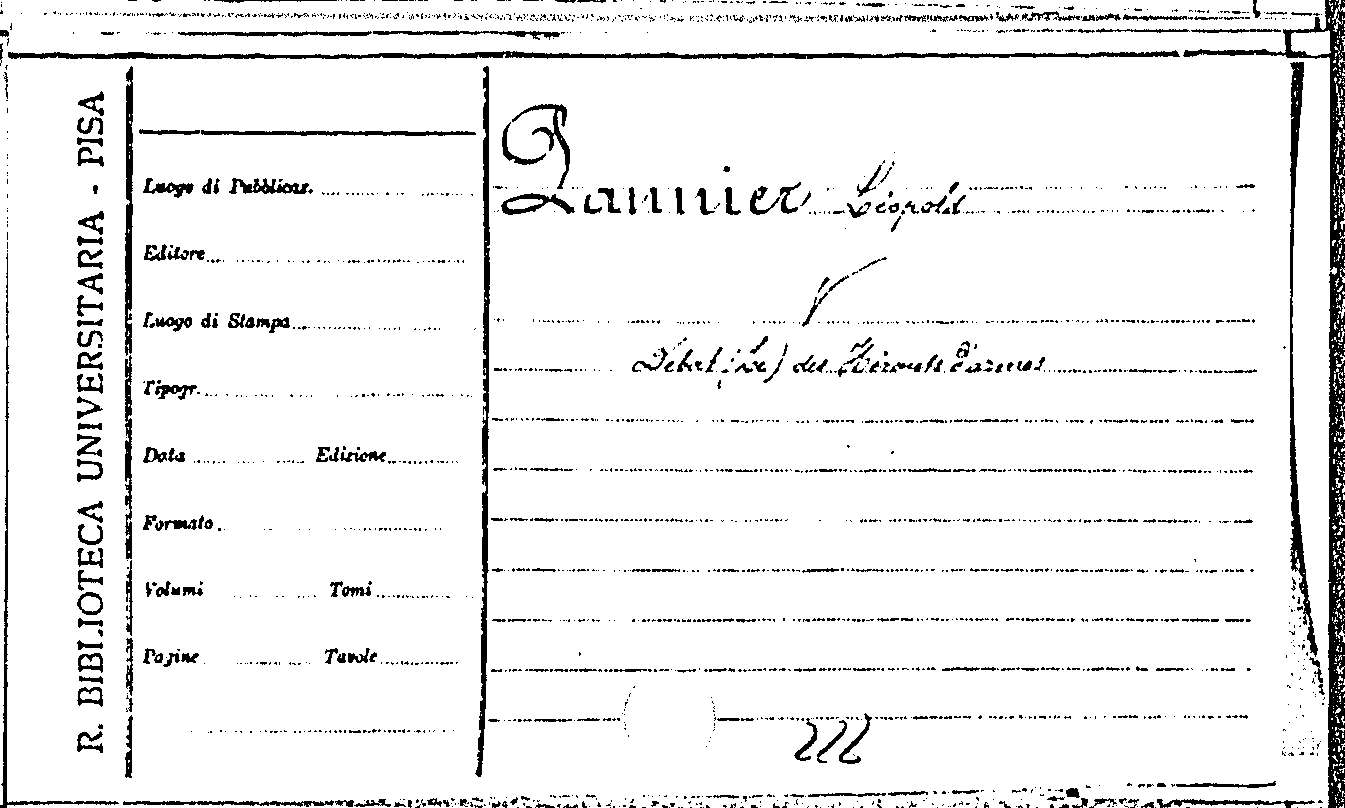 R. BIBLIOTECA UNIVERSITARIA - PISA
Luogo di Pubblicaz.
Editore
Luogo di Stampa
Tipogr.
Data Edizione
Formato
Volumi Tomi
Pagine Tavole
Pannier Léopold
Débat (Le) des Hérauts d'armes